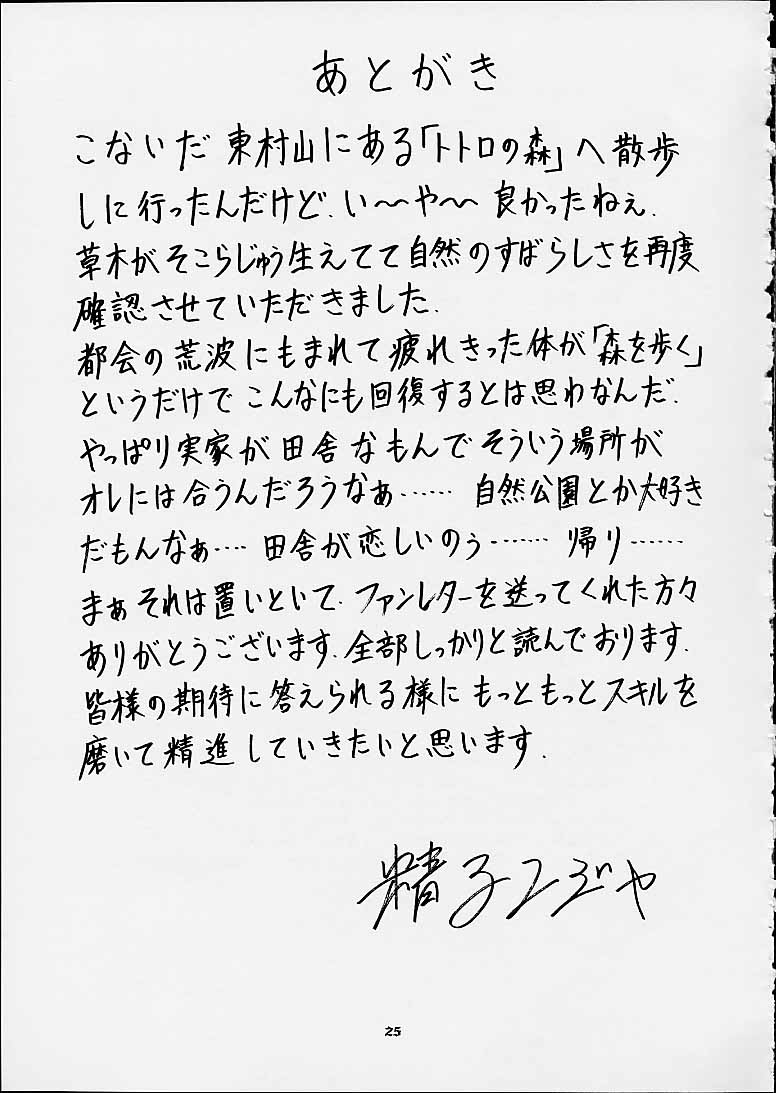 あとがき
こないだ東村山にある「トトロの森」へ散歩
しに行ったんだけど.い〜や〜良かったねぇ.
草木がそこらじゅう生えてて自然のすばらしさを再度
確認させていただきました.
都会の荒波にもまれて疲れきった体が「森を歩く」
というだけでこんなにも回復するとは思わなんだ.
やっぱり実家が田舎なもんでそういう場所が
オレには合うんだろうなぁ……自然公園とか大好き
だもんなぁ…田舎が恋しいのぅ……帰り……
まぁそれは置いといて.ファンレターを送ってくれた方々
ありがとうございます.全部しっかりと読んでおります.
皆様の期待に答えられる様にもっともっとスキルを
磨いて精進していきたいと思います.
25